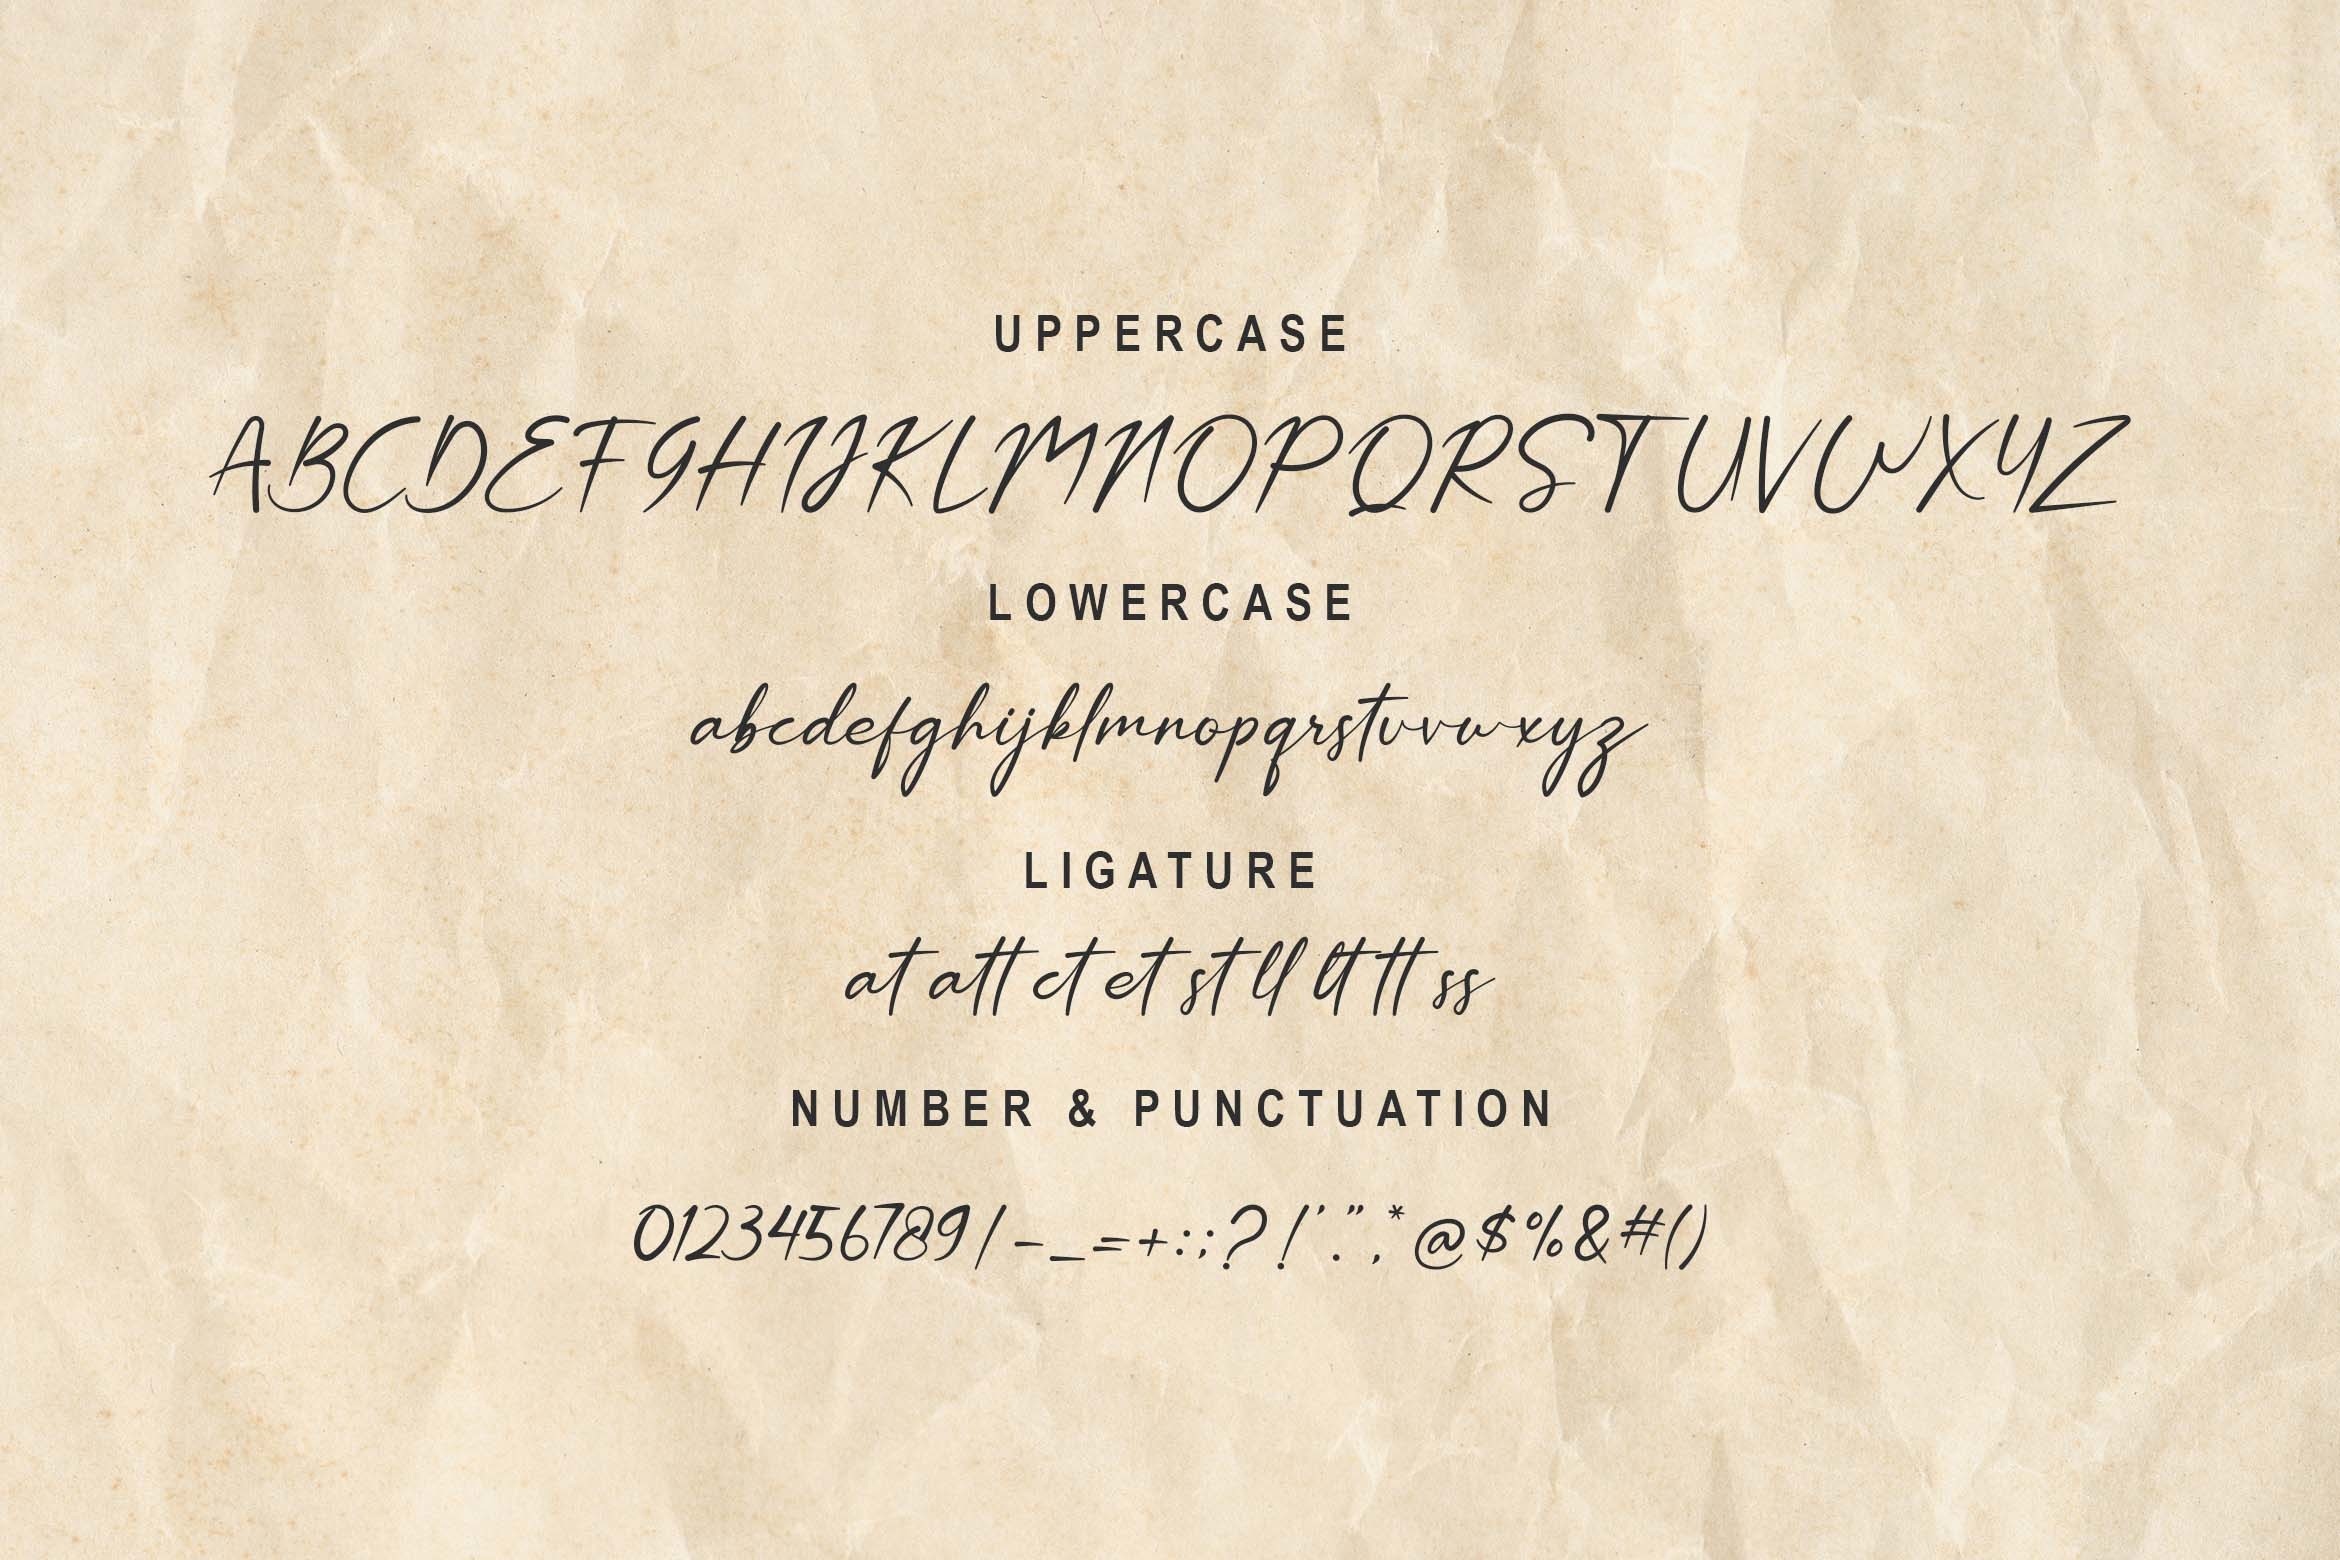 UPPERCASE
ABCDEFGHIJKLMNOPQRSTUVWXYZ
LOWERCASE
abcdefghijklmnopqrstuvwxyz
LIGATURE
at att ct et st ll lt tt ss
NUMBER & PUNCTUATION
0123456789/-_=+:;?!'.",*@$%&#()